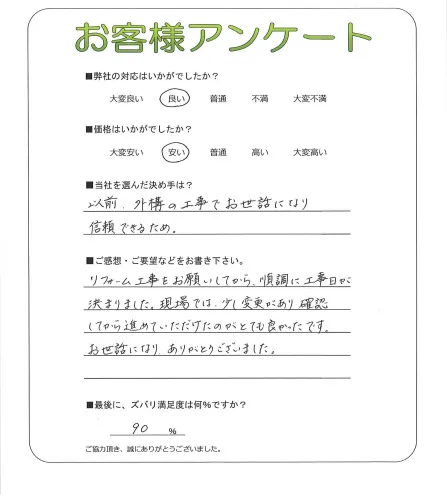 お客様アンケート
■弊社の対応はいかがでしたか?
大変良い 良い 普通 不満 大変不満
■価格はいかがでしたか?
大変安い 安い 普通 高い 大変高い
■当社を選んだ決め手は?
以前、外構の工事でお世話になり
信頼できるため。
■ご感想・ご要望などをお書き下さい。
リフォーム工事をお願いしてから、順調に工事日が
決まりました。現場では、少し変更があり確認
してから進めていただけたのがとても良かったです。
お世話になり、ありがとうございました。
■最後に、ズバリ満足度は何%ですか?
90 %
ご協力頂き、誠にありがとうございました。